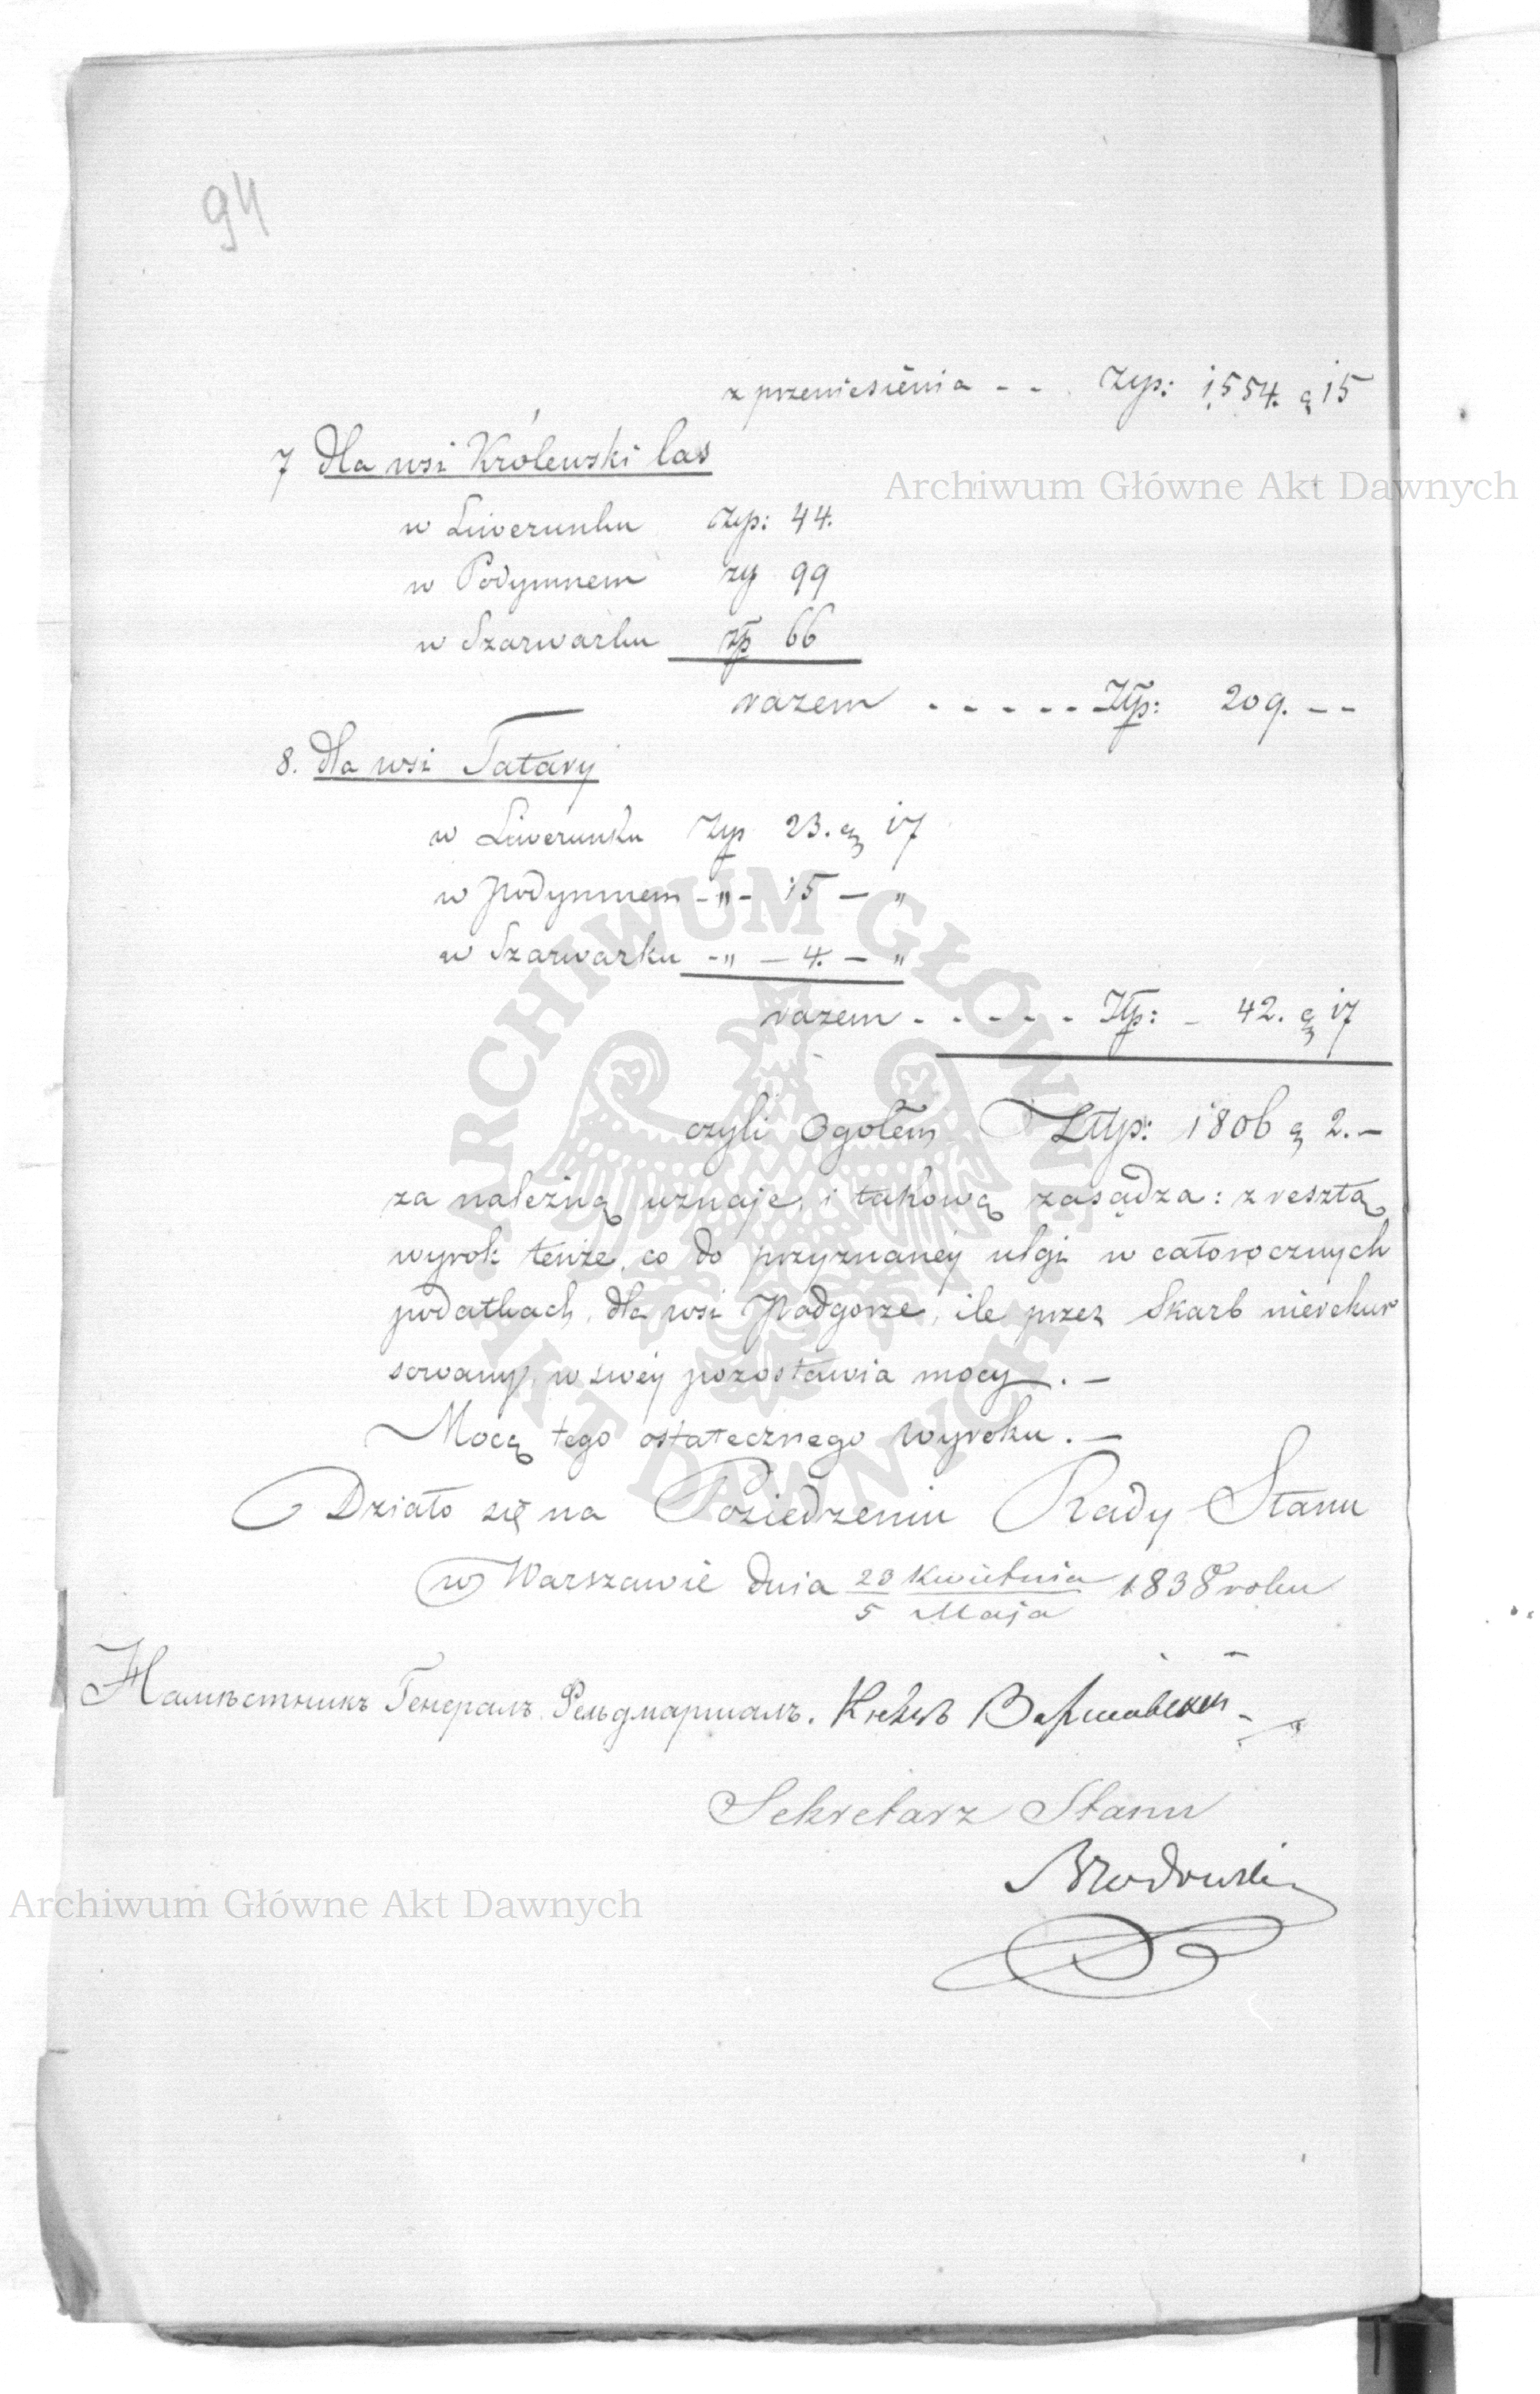 94
z przeniesienia - - . Złp: 1,554. g 15
7 Dla wsi Królewski las
w Liwerunku Złp: 44.
w Podymnem zp 99
w Szarwarku złp 66
razem . - - - - - Złp: 209. - -
8. Dla wsi Tatary
w Liwerunku Złp 23. g 17
w Podymnem - " - 15 - "
w Szarwarku - " - 4. - "
razem - . - - - - Złp: - 42. g 17
czyli Ogołem Złp: 1806 g 2. -
za należną uznaje, i takową zasądza: zresztą
wyrok tenże, co do przyznanéy ulgi w całorocznych
podatkach, dla wsi Podgorze, ile przez Skarb nierekur
sowany, w swéy pozostawia mocy. -
Mocą tego ostatecznego Wyroku. -
Działo się na Posiedzeniu Rady Stanu
w Warszawie dnia 23 Kwietnia 1838 roku
5 Maja
Намѣстникъ Генералъ Фельдмаршалъ. Князь Варшавскій
Sekretarz Stanu
Brodowski
Archiwum Główne Akt Dawnych
ARCHIWUM GŁÓWNE AKT DAWNYCH
Archiwum Główne Akt Dawnych